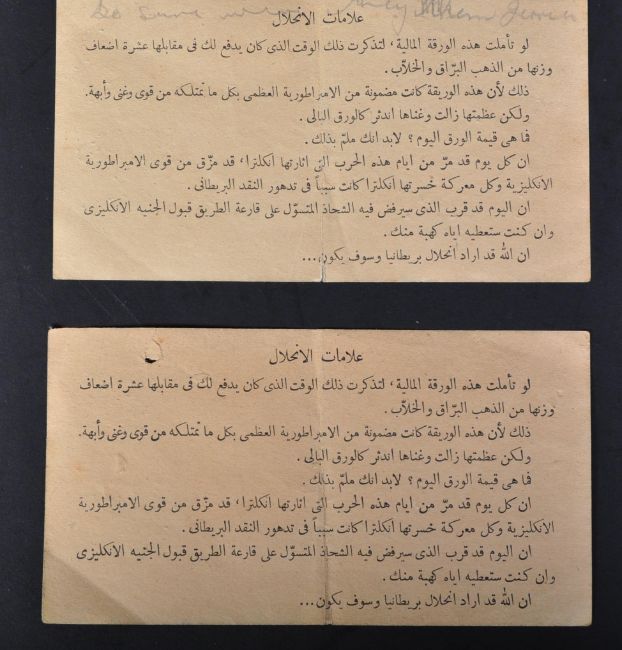 So some
علامات الانحلال
لو تأملت هذه الورقة المالية، لتذكرت ذلك الوقت الذى كان يدفع لك فى مقابلها عشرة اضعاف
وزنها من الذهب البرّاق والخلاّب.
ذلك لأن هذه الوريقة كانت مضمونة من الامبراطورية العظمى بكل ما تمتلكه من قوى وغنى وأبهة.
ولكن عظمتها زالت وغناها اندثر كالورق البالى.
فما هى قيمة الورق اليوم؟ لابد انك ملمّ بذلك.
ان كل يوم قد مرّ من ايام هذه الحرب التى اثارتها انكلترا، قد مزّق من قوى الامبراطورية
الانكليزية وكل معركة خسرتها انكلترا كانت سبباً فى تدهور النقد البريطانى.
ان اليوم قد قرب الذى سيرفض فيه الشحاذ المتسوّل على قارعة الطريق قبول الجنيه الانكليزى
وان كنت ستعطيه اياه كهبة منك.
ان الله قد اراد انحلال بريطانيا وسوف يكون...
علامات الانحلال
لو تأملت هذه الورقة المالية، لتذكرت ذلك الوقت الذى كان يدفع لك فى مقابلها عشرة اضعاف
وزنها من الذهب البرّاق والخلاّب.
ذلك لأن هذه الوريقة كانت مضمونة من الامبراطورية العظمى بكل ما تمتلكه من قوى وغنى وأبهة.
ولكن عظمتها زالت وغناها اندثر كالورق البالى.
فما هى قيمة الورق اليوم؟ لابد انك ملمّ بذلك.
ان كل يوم قد مرّ من ايام هذه الحرب التى اثارتها انكلترا، قد مزّق من قوى الامبراطورية
الانكليزية وكل معركة خسرتها انكلترا كانت سبباً فى تدهور النقد البريطانى.
ان اليوم قد قرب الذى سيرفض فيه الشحاذ المتسوّل على قارعة الطريق قبول الجنيه الانكليزى
وان كنت ستعطيه اياه كهبة منك.
ان الله قد اراد انحلال بريطانيا وسوف يكون...